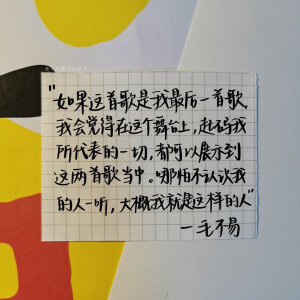 "如果这首歌是我最后一首歌
我会觉得在这个舞台上,起码我
所代表的一切,都可以展示到
这两首歌当中。哪怕不认识我
的人一听,大概我就是这样的人"
—毛不易